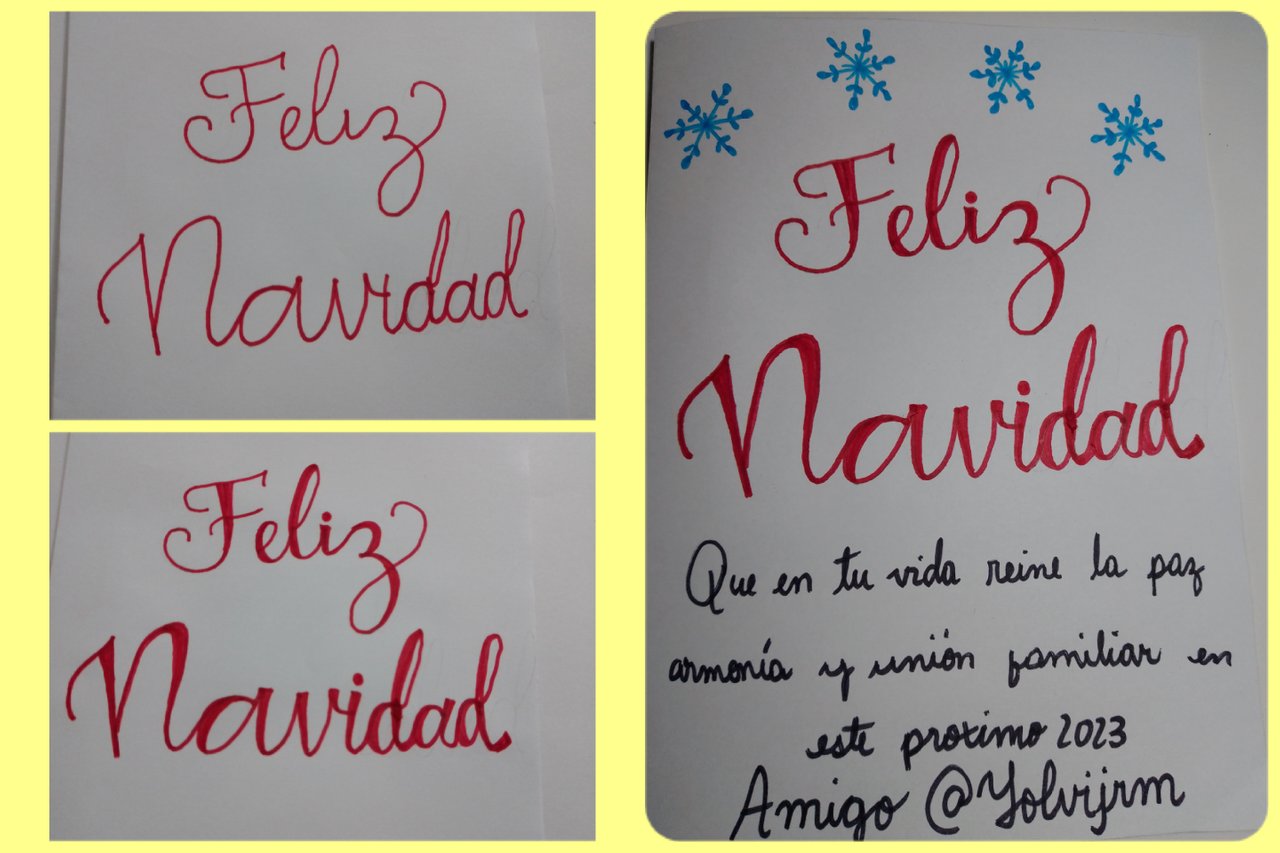 Feliz
Navidad
Feliz
Navidad
Feliz
Navidad
Que en tu vida reine la paz
armonía y unión familiar en
este proximo 2023
Amigo @Yolvijrm